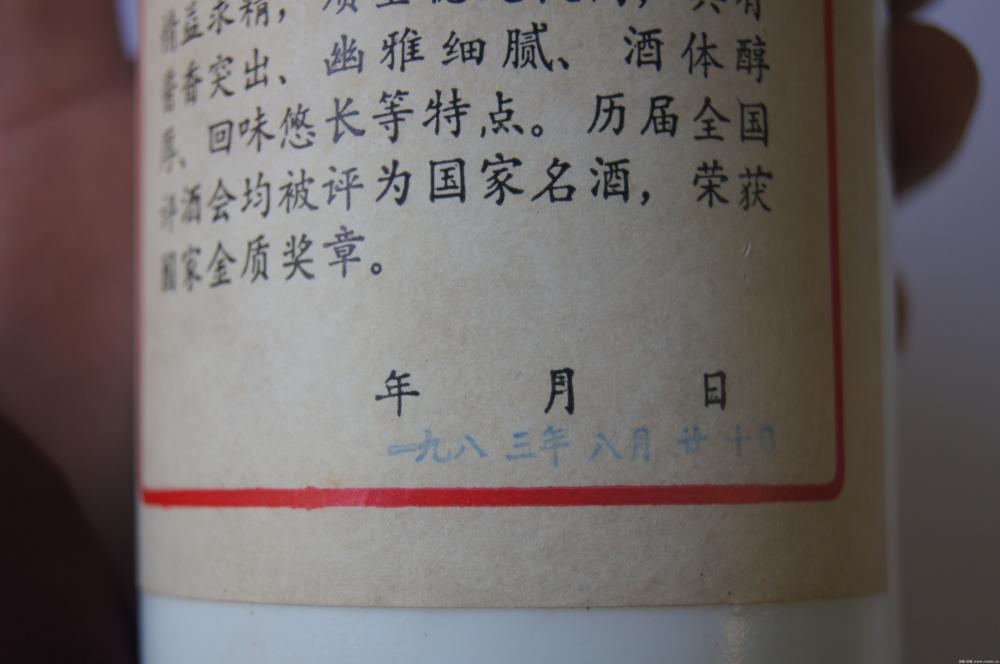 精益求精，质量
酱香突出、幽雅细腻、酒体醇
厚、回味悠长等特点。历届全国
评酒会均被评为国家名酒，荣获
国家金质奖章。
年 月 日
一九八三年八月廿十日